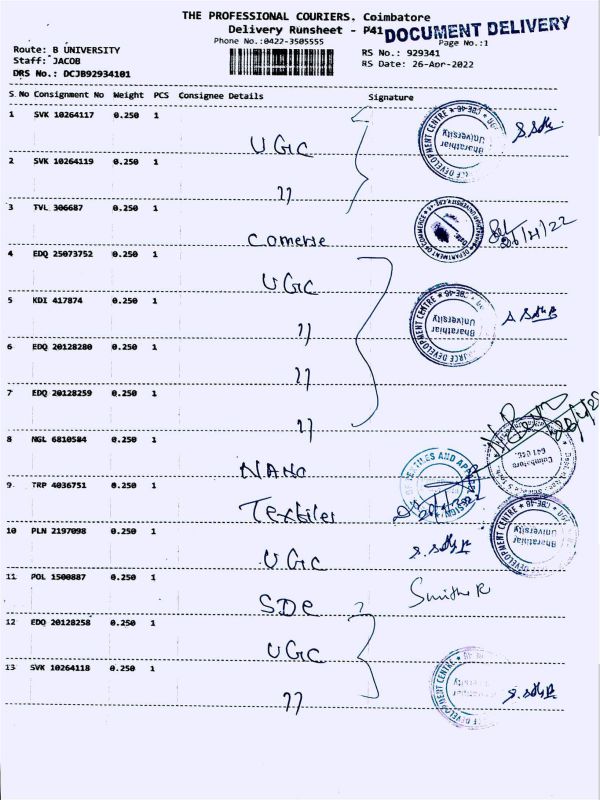 THE PROFESSIONAL COURIERS. Coimbatore
Delivery Runsheet - P41
DOCUMENT DELIVERY
Phone No.:0422-3505555
Page No.:1
Route: B UNIVERSITY
RS No.: 929341
Staff: JACOB
RS Date: 26-Apr-2022
DRS No.: DCJB92934101
S.No Consignment No Weight PCS Consignee Details Signature
1 SVK 10264117 0.250 1
UGC
2 SVK 10264119 0.250 1
11
3 TVL 306687 0.250 1
Comerse
4 EDQ 25073752 0.250 1
UGC
5 KDI 417874 0.250 1
11
6 EDQ 20128280 0.250 1
11
7 EDQ 20128259 0.250 1
11
8 NGL 6810584 0.250 1
NANO
9 TRP 4036751 0.250 1
Textiles
10 PLN 2197098 0.250 1
UGC
11 POL 1500887 0.250 1
SDC
12 EDQ 20128258 0.250 1
UGC
13 SVK 10264118 0.250 1
11
Bharathiar
University
DEPARTMENT OF COMMERCE
Bharathiar
University
Coimbatore
Bharathiar
University